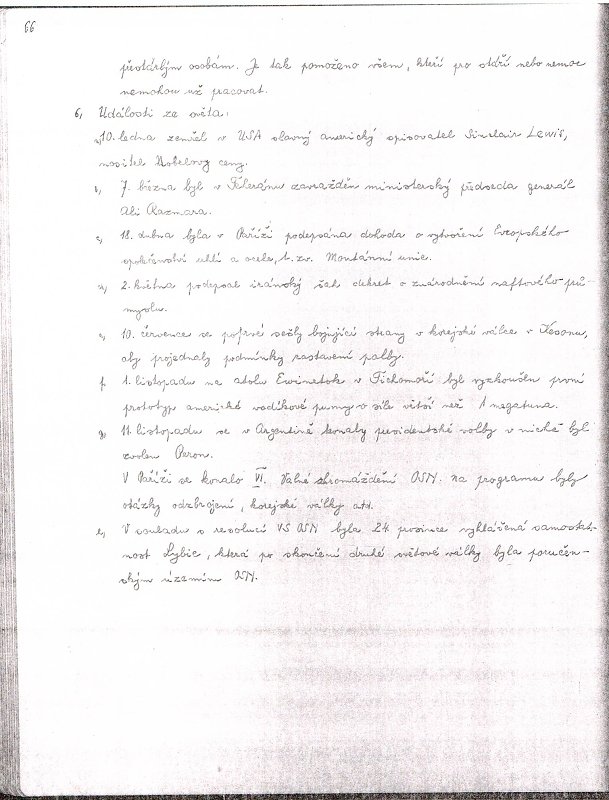 66
přestárlým osobám. Je tak pomoženo všem, kteří pro stáří nebo nemoc
nemohou už pracovat.
6, Události ze světa:
a, 10. ledna zemřel v USA slavný americký spisovatel Sinclair Lewis,
nositel Nobelovy ceny.
b, 7. března byl v Teheránu zavražděn ministerský předseda generál
Ali Razmara.
c, 18. dubna byla v Paříži podepsána dohoda o vytvoření Evropského
společenství uhlí a ocele, t. zv. Montánní unie.
d, 2. května podepsal iránský šáh dekret o znárodnění naftového prů-
myslu.
e, 10. července se poprvé sešly bojující strany v korejské válce v Kesonu,
aby projednaly podmínky zastavení palby.
f, 1. listopadu na atolu Eniwetok v Tichomoří byl vyzkoušen první
prototyp americké vodíkové pumy o síle větší než 1 megatuna.
g, 11. listopadu se v Argentině konaly presidentské volby v nichž byl
zvolen Peron.
V Paříži se konalo VI. Valné shromáždění OSN. Na programu byly
otázky odzbrojení, korejské války atd.
V souladu s resolucí VS OSN byla 24. prosince vyhlášená samostat-
nost Lybie, která po skončení druhé světové války byla poručen-
ským územím OSN.